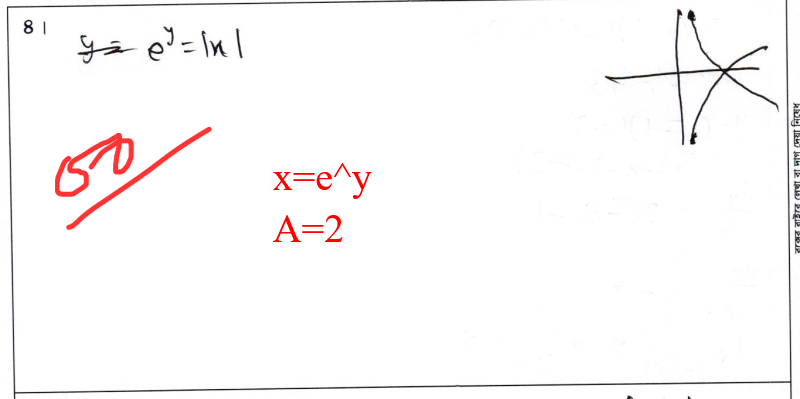 8|
y= e^y = |x|
x=e^y
A=2
বক্সের বাইরে লেখা বা দাগ দেয়া নিষেধ